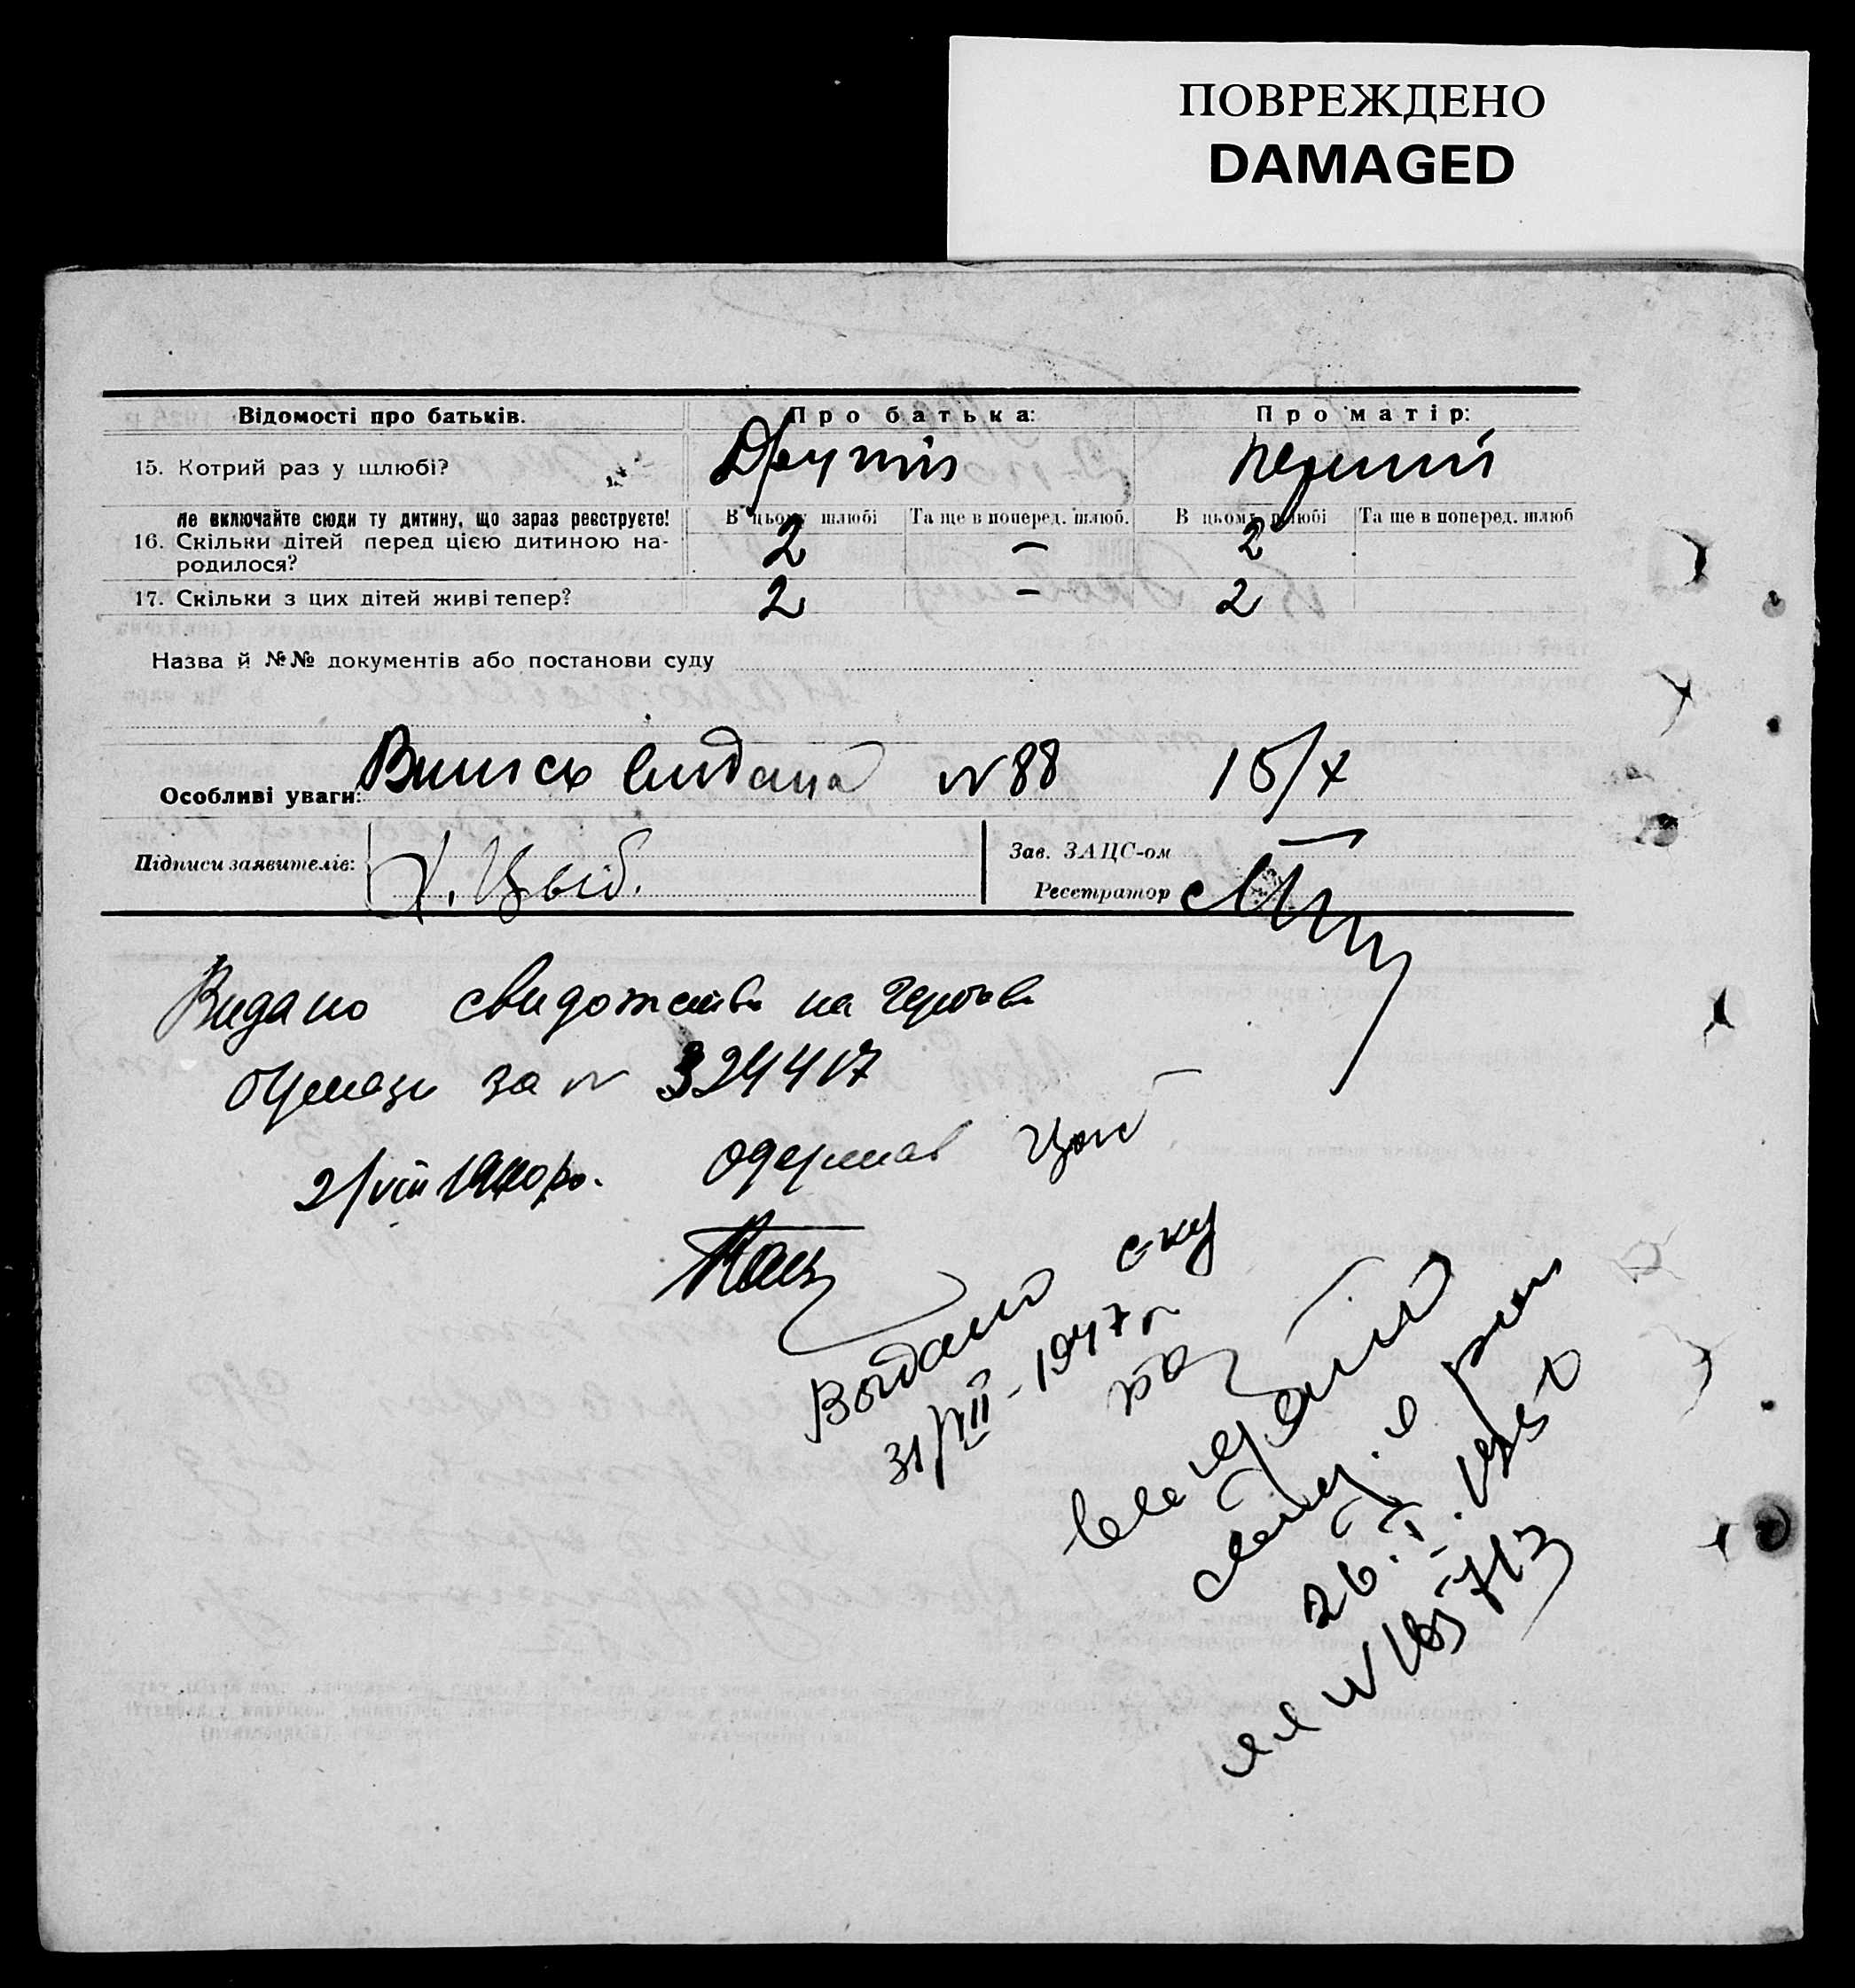 ПОВРЕЖДЕНО
DAMAGED
Відомості про батьків. Про батька: Про матір:
15. Котрий раз у шлюбі? Другий перший
Не включайте сюди ту дитину, що зараз реєструєте! В цьому шлюбі Та ще в поперед. шлюб. В цьому шлюбі Та ще в поперед. шлюб
16. Скільки дітей перед цією дитиною на- 2 – 2
родилося?
17. Скільки з цих дітей живі тепер? 2 – 2
Назва й №№ документів або постанови суду
Особливі уваги: Випись видана № 88 15/X
Підписи заявителів: Зав. ЗАЦС-ом
Реєстратор
Видано свидотство на гербов
бумазі за № 324417
21/VIII 1940 р. одержав
Выдано с-ку
31/VII-1947 г.
26.I.
№ 165713